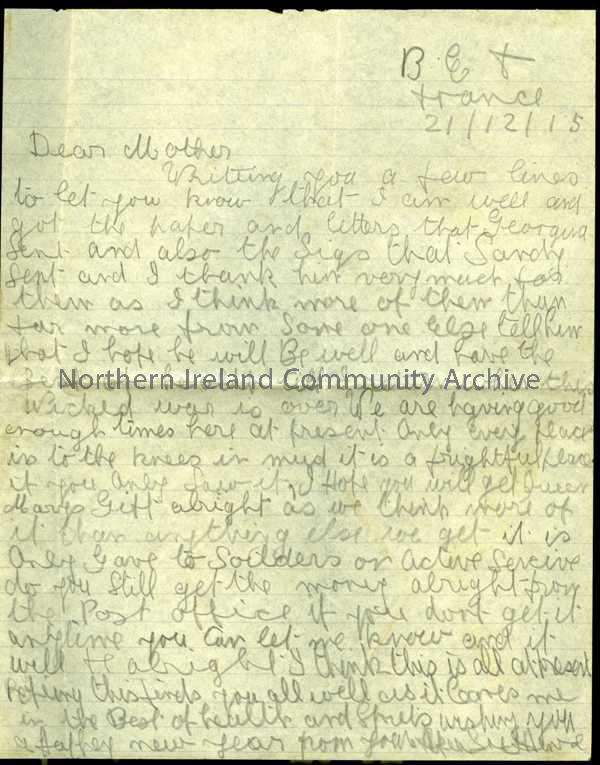 B. E. F
France
21/12/15
Dear Mother
Whitting you a few lines
to let you know that I am well and
got the paper and letters that Georgina
Sent and also the Sigs that Sandy
Sent and I thank him very much for
them as I think more of them than
far more from Some one Else tell him
that I hope he will Be well and have the
this
Northern Ireland Community Archive
Wicked war is over We are having good
enough times here at present Only every place
is to the knees in mud it is a frightful place
if you Only Saw it, I Hope you will get Queen
Marys Gift alright as we think more of
it than anything else we get it is
Only Gave to Soilders on Active Servive
do you Still get the money alright from
the Post office if you dont get it
anytime you Can let me know and it
will be alright I think this is all at present
hoping this finds you all well as it Leaves me
in the Best of health and Sprits wishing you
a Happy new year from your